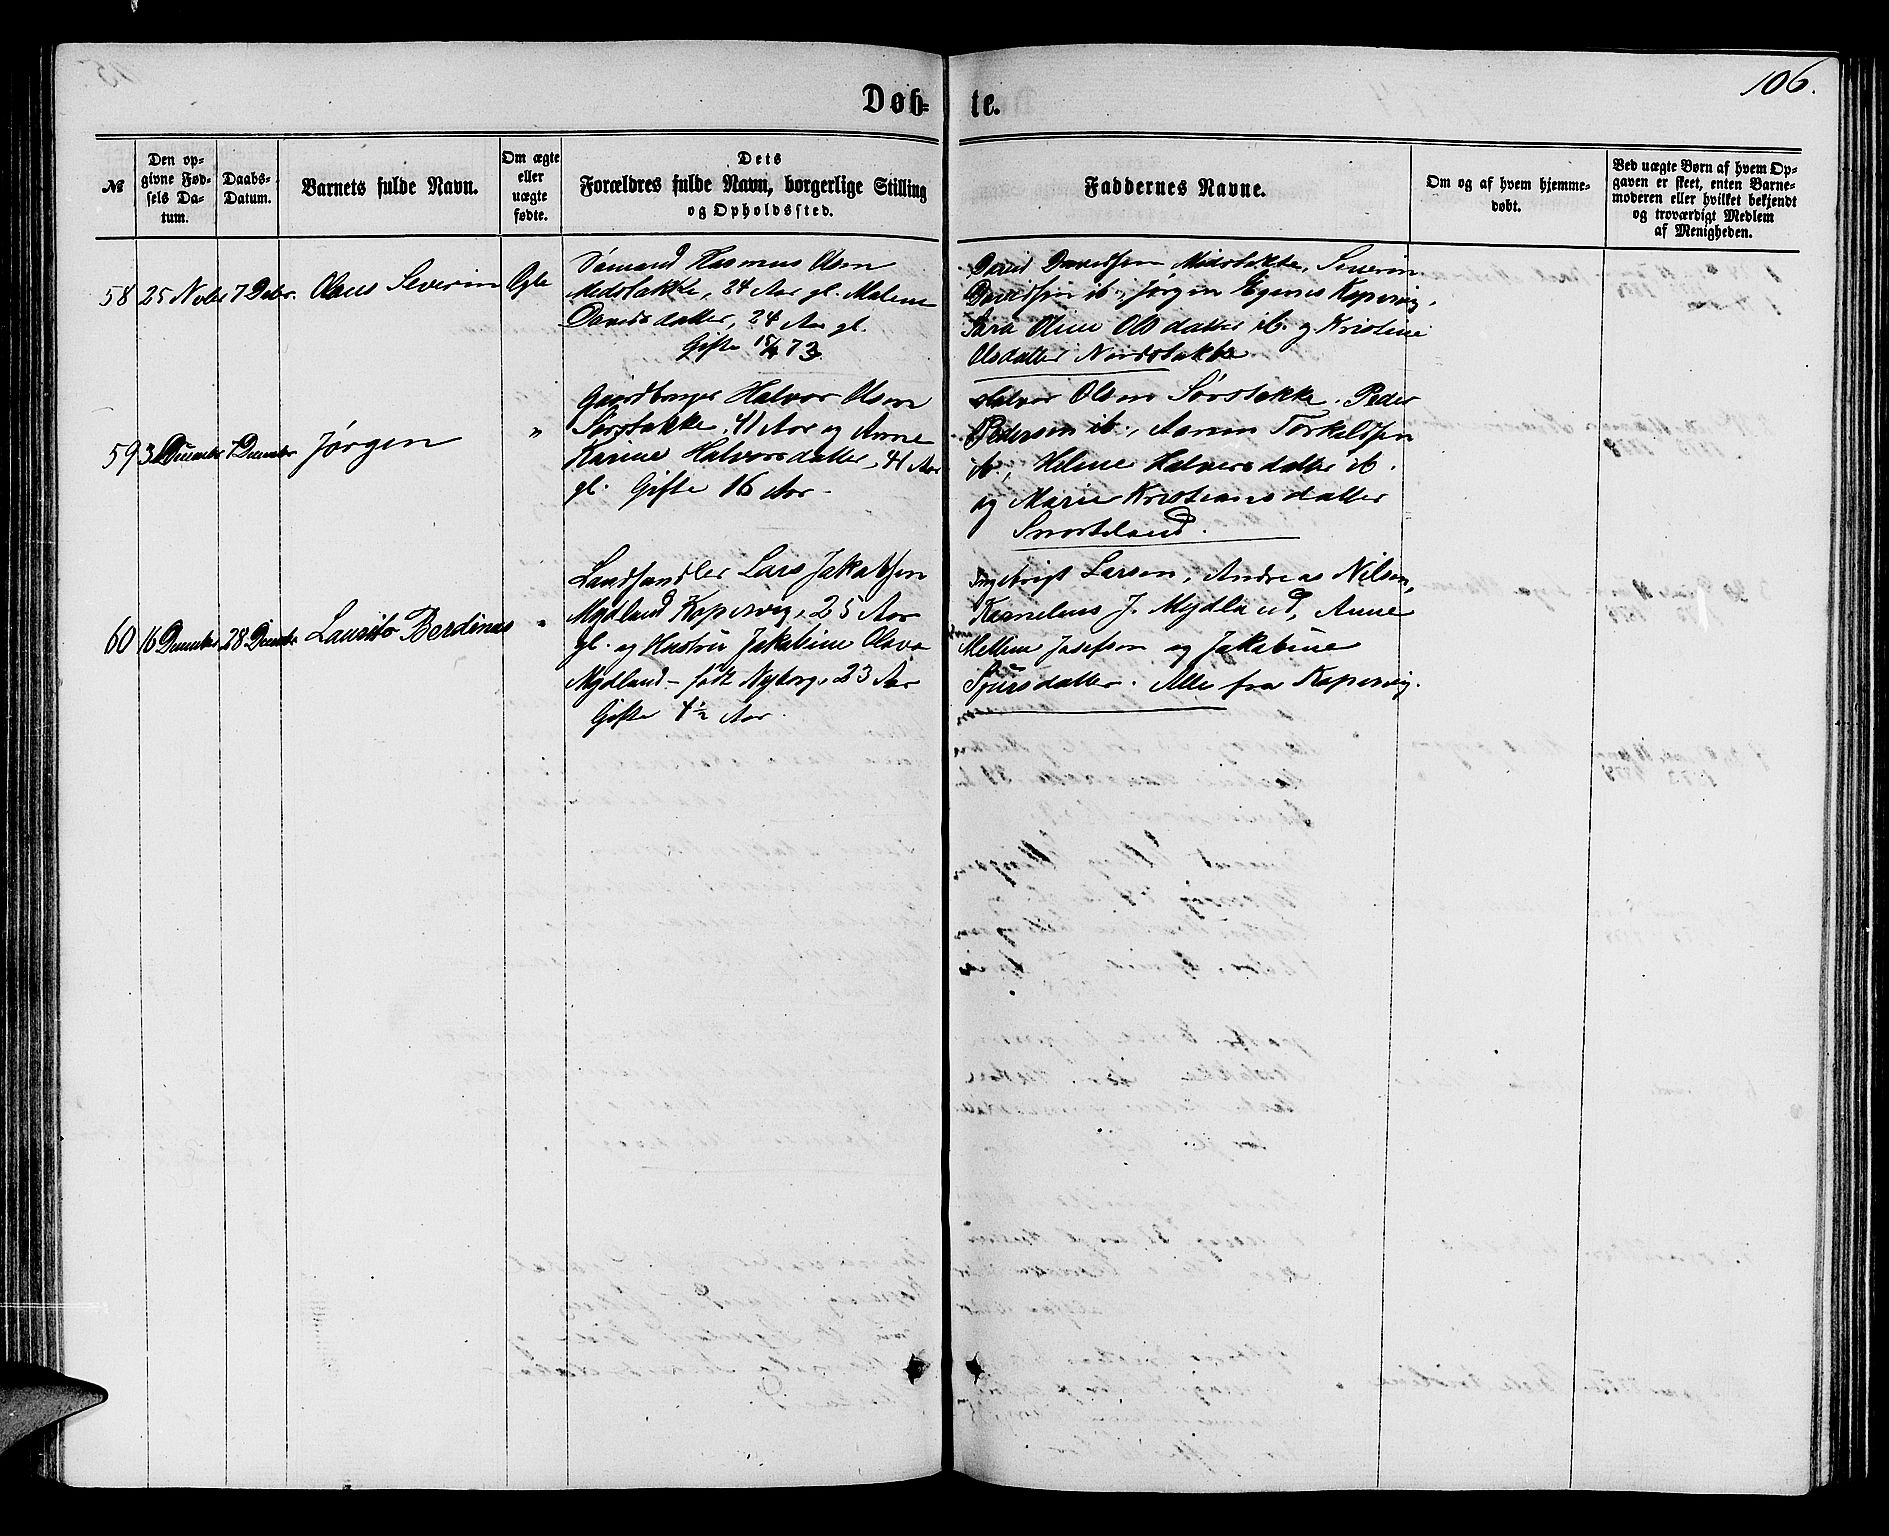 106.
Døb-
te.
№
Den op-
givne Fød-
sels Da-
tum.
Daabs-
Datum.
Barnets fulde Navn.
Om ægte
eller
uægte
fødte.
Dets
Forældres fulde Navn, borgerlige Stilling
og Opholdssted.
Faddernes Navne.
Om og af hvem hjemme-
døbt.
Ved uægte Børn af hvem Op-
gaven er skeet, enten Barne-
moderen eller hvilket bekjendt
og troværdigt Medlem
af Menigheden.
58 25 Nobr 7 Debr. Olaus Severin Ægte
Sømand Rasmus Olsen
Medstakke, 24 Aar gl. Malene
Davidsdatter, 24 Aar gl.
Gifte 15/4 73.
David Davidsen Midstakke, Severin
Davidsen ib., Jørgen Kopervig,
Sara Oline Olsdatter ib. og Kristine
Olsdatter Nordstakke
59 3 December 7 December Jørgen "
Gaardbruger Halvor Olsen
Sørstakke, 41 Aar og Anne
Karine Halvorsdatter, 41 Aar
gl. Gifte 16 Aar.
Halvor Olsen Sørstakke. Peder
Pedersen ib., Aanen Torkeldsen
ib., Helene Halvorsdatter ib.
og Marie Kristiansdatter
Snorteland.
60 16 December 28 December Laurits Berdinus "
Landhandler Lars Jakobsen
Mydland Kopervig, 25 Aar
gl. og Hustru Jakobine Olava
Mydland - født Nyborg, 23 Aar
Gifte 4½ Aar.
Ingebrigt Larsen, Andreas Nilsen,
Kornelius J. Mydland, Anne
Josefsen og Jakobine
Sjursdatter. Alle fra Kopervig.